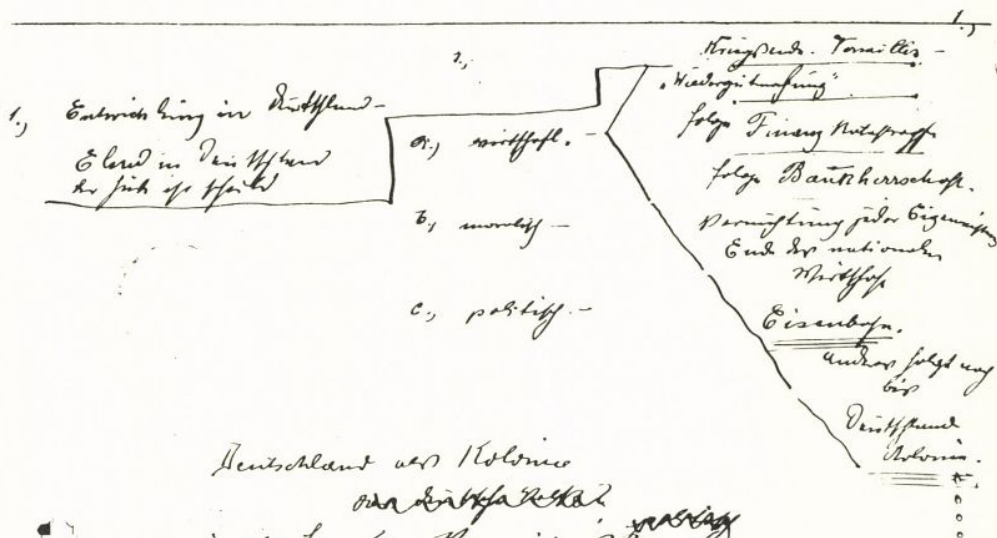 1.,
1., Entwicklung in Deutschland -
Elend in Deutschland
der Jude ist schuld
2.,
a., wirtschaftl. -
b., moralisch -
c., politisch. -
Kriegsende. Versailles -
„Wiedergutmachung"
folge Finanz
folge Bankherrschaft.
Vernichtung jeder
Ende der nationalen
Wirtschaft
Eisenbahn.
anderes folgt nach
bis
Deutschland
Kolonie.
Deutschland als Kolonie